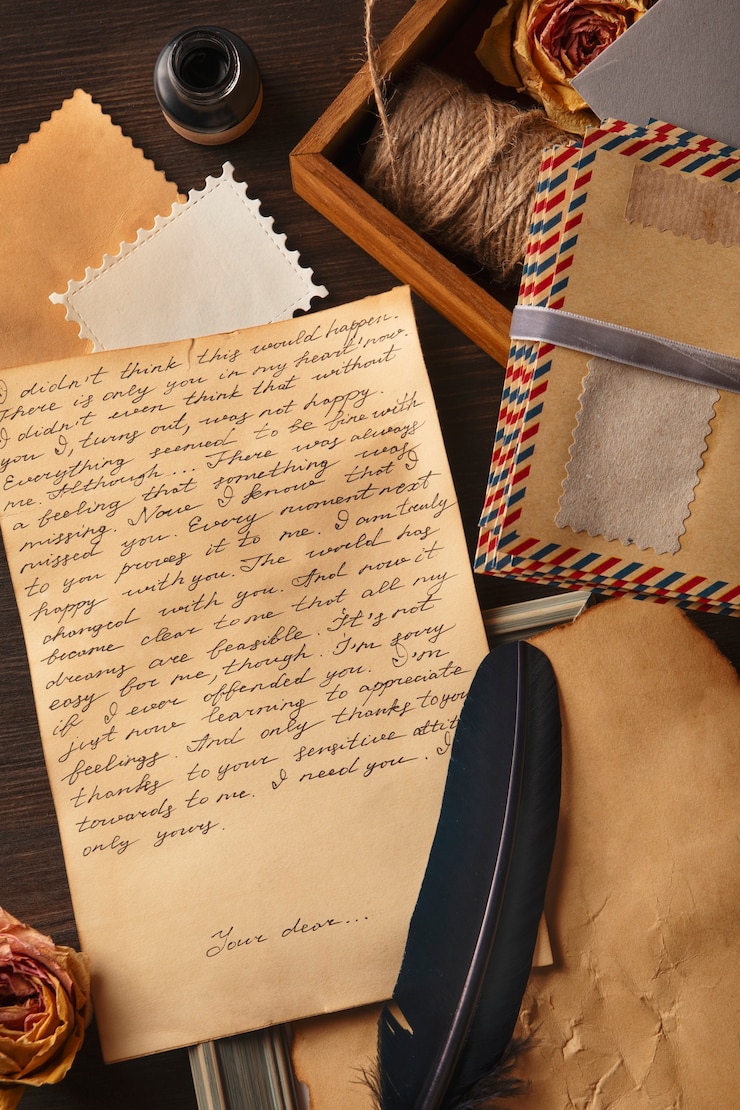 I didn't think this would happen.
There is only you in my heart now.
I didn't even think that without
you I, turns out, was not happy.
Everything seemed to be fine with
me. Although... There was always
a feeling that something was
missing. Now I know that I
missed you. Every moment next
to you proves it to me. I am truly
happy with you. The world has
changed with you. And now it
became clear to me that all my
dreams are feasible. It's not
easy for me, though. I'm sorry
if I ever offended you. I'm
just now learning to appreciate
feelings. And only thanks to you
thanks to your sensitive attit
towards to me. I need you. I
only yours.
Your dear...